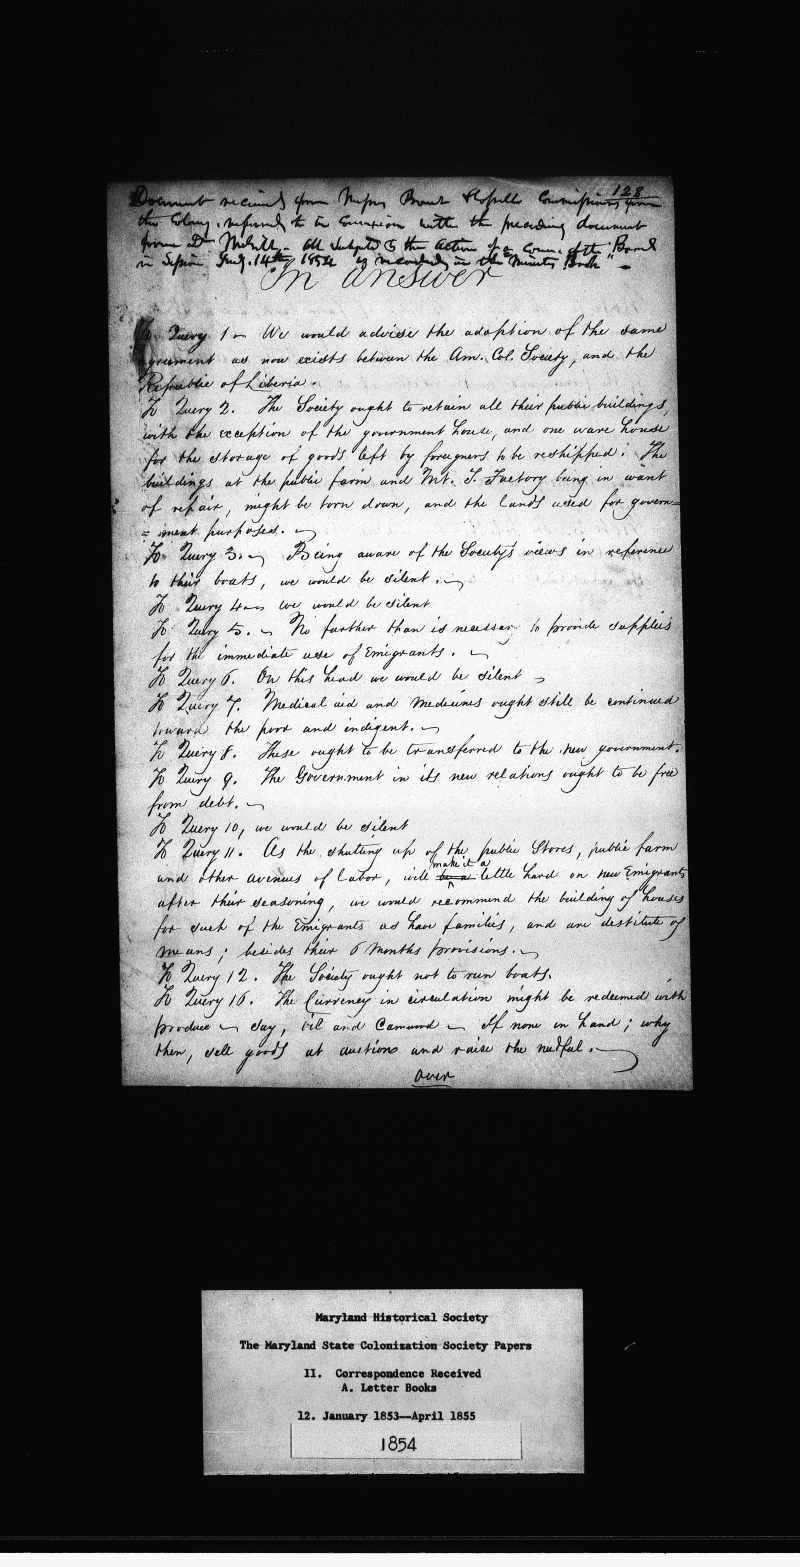 128
Document received from Messrs Prout & Commissioners from
the Colony, referred to in connexion with the preceding document
from Dr – All subjected to the action of a Comee of the Board
in Session July 14th 1854 as recorded in the "Minutes Book" –
In answer
To Query 1 – We would advise the adoption of the same
agreement as now exists between the Am. Col. Society, and the
Republic of Liberia.
To Query 2. The Society ought to retain all their public buildings,
with the exception of the government house, and one ware house
for the storage of goods left by foreigners to be reshipped. The
buildings at the public farm and Mt. T. Factory being in want
of repair, might be torn down, and the lands used for govern=
=ment purposes. –
To Query 3. – Being aware of the Society's views in reference
to their boats, we would be silent. –
To Query 4 – we would be silent
To Query 5. – No further than is necessary to provide supplies
for the immediate use of Emigrants. –
To Query 6. On this head we would be silent –
To Query 7. Medical aid and medicines ought still be continued
toward the poor and indigent. –
To Query 8. These ought to be transferred to the new government.
To Query 9. The Government in its new relations ought to be free
from debt. –
To Query 10, we would be silent
To Query 11. As the shutting up of the public Stores, public farm
make it a
and other avenues of labor, will be a little hard on new Emigrants
after their seasoning, we would recommend the building of houses
for such of the Emigrants as have families, and are destitute of
means; besides their 6 months provisions. –
To Query 12. The Society ought not to run boats.
To Query 16. The Currency in circulation might be redeemed with
produce – say, oil and Camwood – If none in hand; why
then, sell goods at auctions and raise the needful. –
over
Maryland Historical Society
The Maryland State Colonization Society Papers
II. Correspondence Received
A. Letter Books
12. January 1853--April 1855
1854